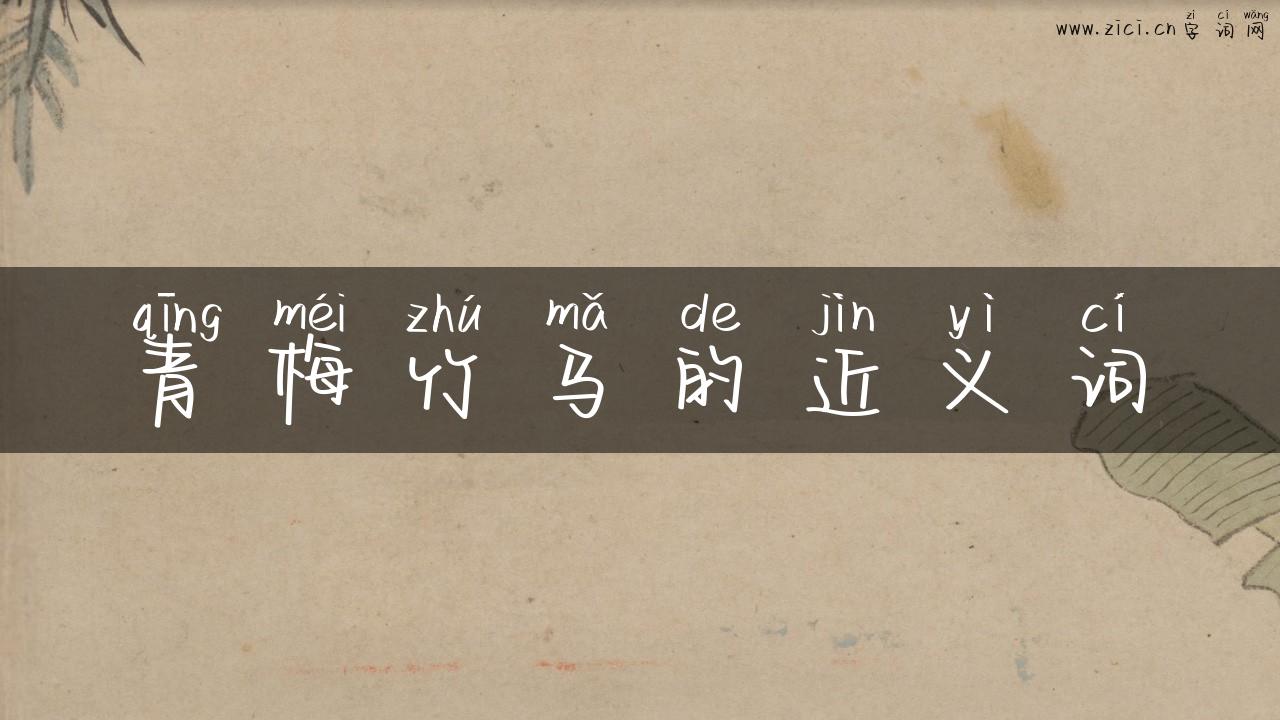 zì cí wǎng
www.zici.cn 字词网
qīng méi zhú mǎ de jìn yì cí
青梅竹马的近义词